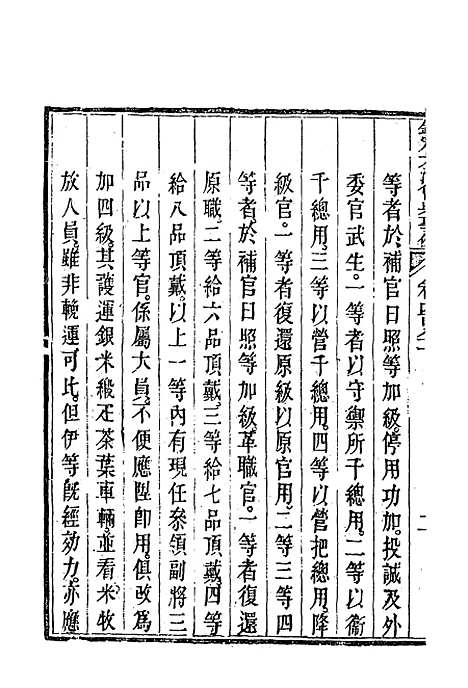 等者於補官日照等加級停用功加投誠及外
委官武生一等者以守禦所千總用二等以衞
千總用三等以營千總用四等以營把總用降
級官一等者復還原級以原官用二等三等四
等者於補官日照等加級革職官一等者復還
原職二等給六品頂戴三等給七品頂戴四等
給八品頂戴以上一等內有現任叅領副將三
品以上等官係屬大員不便應陞卽用俱改爲
加四級其護運銀米緞疋茶葉車輛並看米收
放人員雖非輓運可比但伊等旣經効力亦應